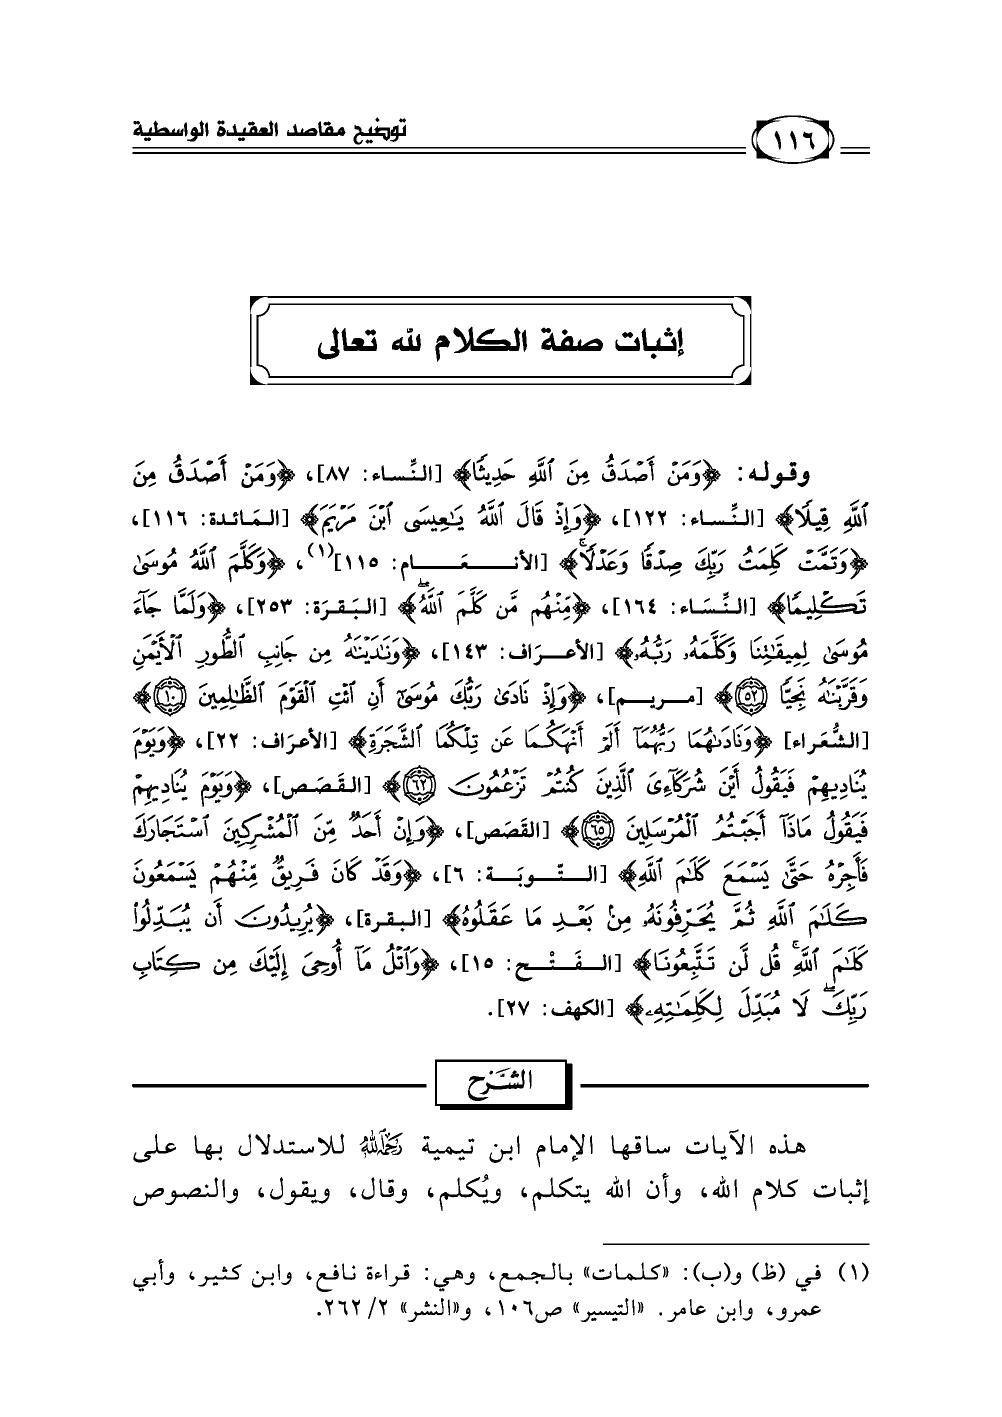 توضيح مقاصد العقيدة الواسطية
١١٦
إثبات صفة الكلام لله تعالى
وقوله: ﴿وَمَنْ أَصْدَقُ مِنَ ٱللَّهِ حَدِيثًا﴾ [النِّساء: ٨٧]، ﴿وَمَنْ أَصْدَقُ مِنَ
ٱللَّهِ قِيلًا﴾ [النِّساء: ١٢٢]، ﴿وَإِذْ قَالَ ٱللَّهُ يَٰعِيسَى ٱبْنَ مَرْيَمَ﴾ [المَائدة: ١١٦]،
﴿وَتَمَّتْ كَلِمَتُ رَبِّكَ صِدْقًا وَعَدْلًا﴾ [الأنعَام: ١١٥](١)، ﴿وَكَلَّمَ ٱللَّهُ مُوسَىٰ
تَكْلِيمًا﴾ [النِّسَاء: ١٦٤]، ﴿مِّنْهُم مَّن كَلَّمَ ٱللَّهُ﴾ [البَقرَة: ٢٥٣]، ﴿وَلَمَّا جَآءَ
مُوسَىٰ لِمِيقَٰتِنَا وَكَلَّمَهُۥ رَبُّهُۥ﴾ [الأعرَاف: ١٤٣]، ﴿وَنَٰدَيْنَٰهُ مِن جَانِبِ ٱلطُّورِ ٱلْأَيْمَنِ
وَقَرَّبْنَٰهُ نَجِيًّا ٥٢﴾ [مريم]، ﴿وَإِذْ نَادَىٰ رَبُّكَ مُوسَىٰٓ أَنِ ٱئْتِ ٱلْقَوْمَ ٱلظَّٰلِمِينَ ١٠﴾
[الشُّعَراء] ﴿وَنَادَىٰهُمَا رَبُّهُمَآ أَلَمْ أَنْهَكُمَا عَن تِلْكُمَا ٱلشَّجَرَةِ﴾ [الأعرَاف: ٢٢]، ﴿وَيَوْمَ
يُنَادِيهِمْ فَيَقُولُ أَيْنَ شُرَكَآءِىَ ٱلَّذِينَ كُنتُمْ تَزْعُمُونَ ٦٢﴾ [القَصَص]، ﴿وَيَوْمَ يُنَادِيهِمْ
فَيَقُولُ مَاذَآ أَجَبْتُمُ ٱلْمُرْسَلِينَ ٦٥﴾ [القَصَص]، ﴿وَإِنْ أَحَدٌ مِّنَ ٱلْمُشْرِكِينَ ٱسْتَجَارَكَ
فَأَجِرْهُ حَتَّىٰ يَسْمَعَ كَلَٰمَ ٱللَّهِ﴾ [التّوبَة: ٦]، ﴿وَقَدْ كَانَ فَرِيقٌ مِّنْهُمْ يَسْمَعُونَ
كَلَٰمَ ٱللَّهِ ثُمَّ يُحَرِّفُونَهُۥ مِنۢ بَعْدِ مَا عَقَلُوهُ﴾ [البقرة]، ﴿يُرِيدُونَ أَن يُبَدِّلُوا۟
كَلَٰمَ ٱللَّهِۚ قُل لَّن تَتَّبِعُونَا﴾ [الفَتْح: ١٥]، ﴿وَٱتْلُ مَآ أُوحِىَ إِلَيْكَ مِن كِتَابِ
رَبِّكَۖ لَا مُبَدِّلَ لِكَلِمَٰتِهِۦ﴾ [الكهف: ٢٧].
الشَّرْح
هذه الآيات ساقها الإمام ابن تيمية رحمه الله للاستدلال بها على
إثبات كلام الله، وأن الله يتكلم، ويُكلم، وقال، ويقول، والنصوص
(١) في (ظ) و(ب): «كلمات» بالجمع، وهي: قراءة نافع، وابن كثير، وأبي
عمرو، وابن عامر. «التيسير» ص١٠٦، و«النشر» ٢/ ٢٦٢.